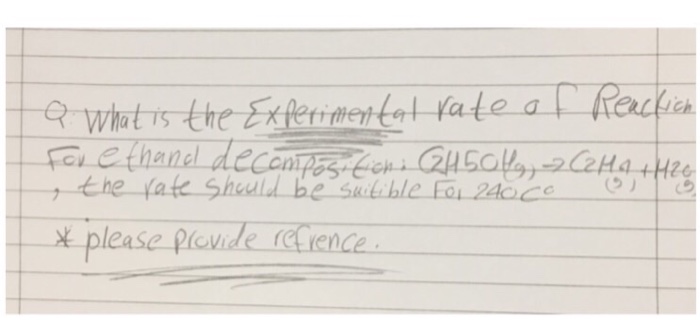 Q. What is the Experimental rate of Reaction
For ethanol decomposition: C2H5OH(g) → C2H4(g) + H2O(g)
, the rate should be suitible For 240 C°
* please provide refrence.